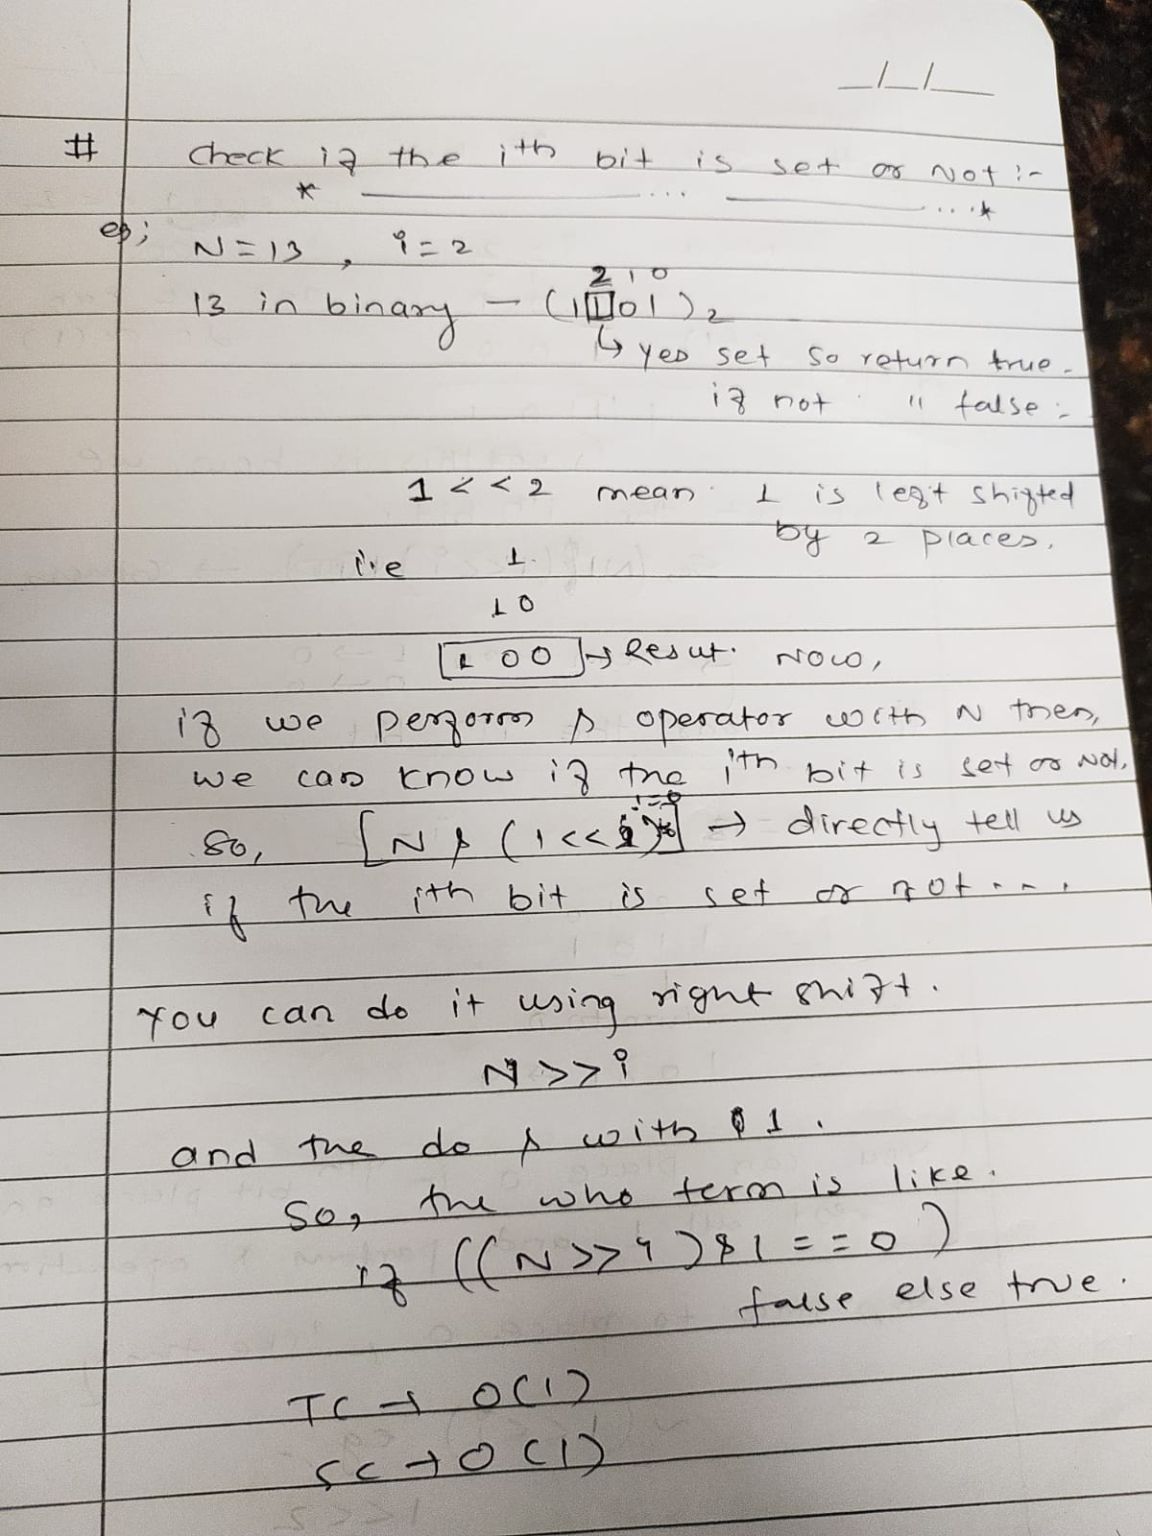 _/_/__
# Check if the ith bit is set or Not :-
eg; N=13 , i=2
2 1 0
13 in binary - (1101)2
↳ yes set so return true.
if not " false :-
1 << 2 mean 1 is left shifted
by 2 places.
i.e 1.
10
[1 00] → Resut. Now,
if we perform & operator with N then,
we can know if the ith bit is set or Not.
So, [N & (1<<i)] → directly tell us
if the ith bit is set or not . . . .
You can do it using right shift.
N >> i
and the do & with 1 .
So, the who term is like.
if ((N >> i) & 1 == 0)
false else true .
TC → O(1)
SC → O(1)